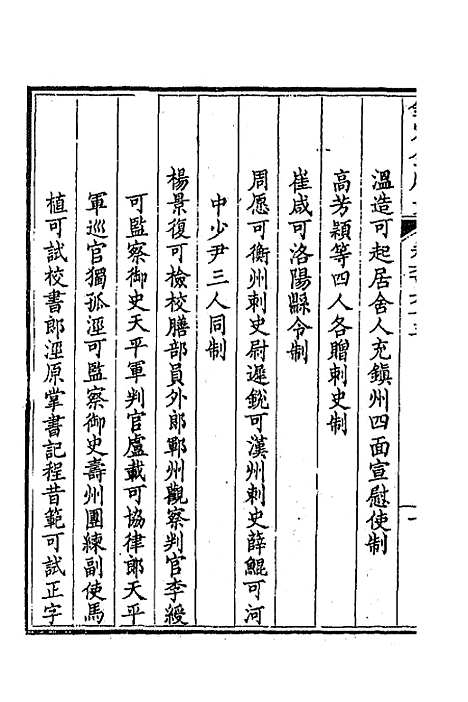 溫造可起居舍人充鎮州四面宣慰使制
高芳穎等四人各贈刺史制
崔咸可洛陽縣令制
周愿可衡州刺史尉遲銳可漢州刺史薛鯤可河
中少尹三人同制
楊景復可檢校膳部員外郎鄆州觀察判官李綬
可監察御史天平軍判官盧載可協律郎天平
軍巡官獨孤涇可監察御史壽州團練副使馬
植可試校書郎涇原掌書記程昔範可試正字